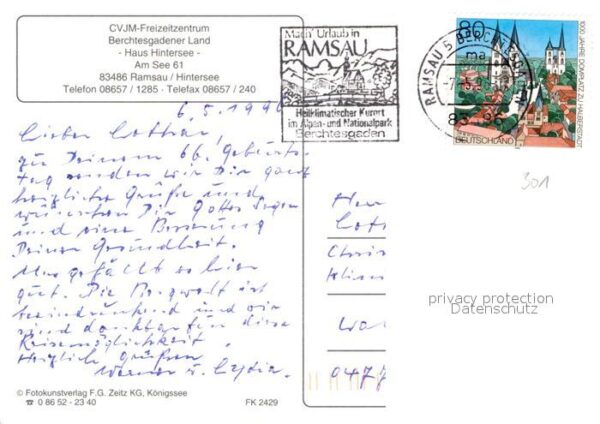 CVJM-Freizeitzentrum
Berchtesgadener Land
- Haus Hintersee -
Am See 61
83486 Ramsau / Hintersee
Telefon 08657 / 1285 · Telefax 08657 / 240
Mach' Urlaub in
RAMSAU
Heilklimatischer Kurort
im Alpen- und Nationalpark
Berchtesgaden
RAMSAU b BERCHTESGADEN
80
1000 JAHRE DOMPLATZ ZU HALBERSTADT
DEUTSCHLAND
301
6.5.1996
Lieber Lothar,
zu Deinem 66. Geburts-
tag senden wir Dir ganz
herzliche Grüße und
wünschen Dir Gottes Segen
und eine Besserung
Deiner Gesundheit.
Uns gefällt es hier
gut. Die Bergwelt ist
beeindruckend und wir
sind dankbar für diese
Reisemöglichkeit.
Herzlich grüßen
Werner u. Lydia.
Herr
Lot
Chris
0947
privacy protection
Datenschutz
© Fotokunstverlag F.G. Zeitz KG, Königssee
☎ 0 86 52 - 23 40
FK 2429